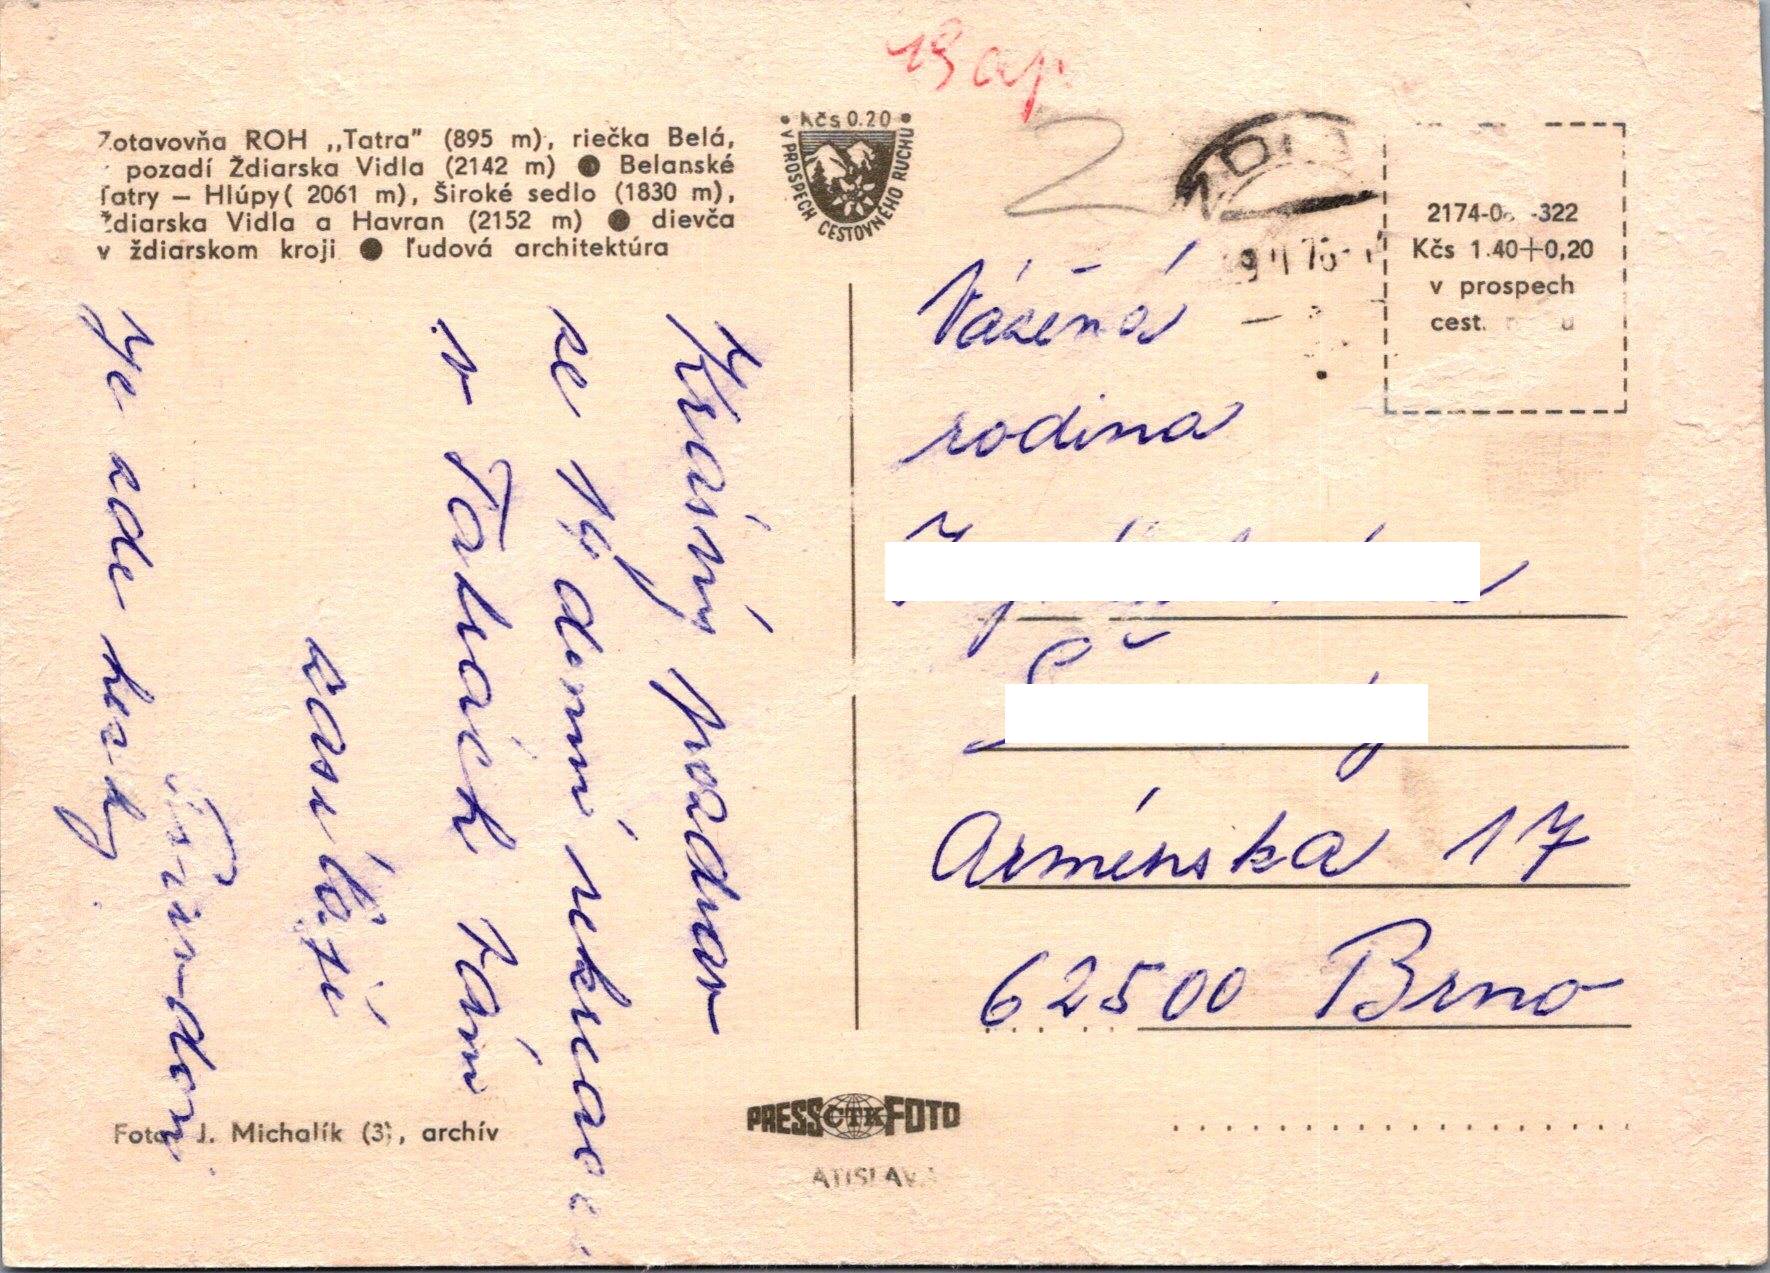 19 ap.
Zotavovňa ROH „Tatra" (895 m), riečka Belá,
pozadí Ždiarska Vidla (2142 m) ● Belanské
Tatry — Hlúpy( 2061 m), Široké sedlo (1830 m),
Ždiarska Vidla a Havran (2152 m) ● dievča
v ždiarskom kroji ● ľudová architektúra
• Kčs 0.20 •
V PROSPECH CESTOVNÉHO RUCHU
2174-0 -322
Kčs 1.40+0,20
v prospech
cest.
Krásný pozdrav
se 14 denní rekreace
v Tatrách Vám
zasílají
Je zde hezky.
Vážená
rodina
Arménská 17
62500 Brno
Foto J. Michalík (3), archív
PRESS ČTK FOTO
ATISLAV